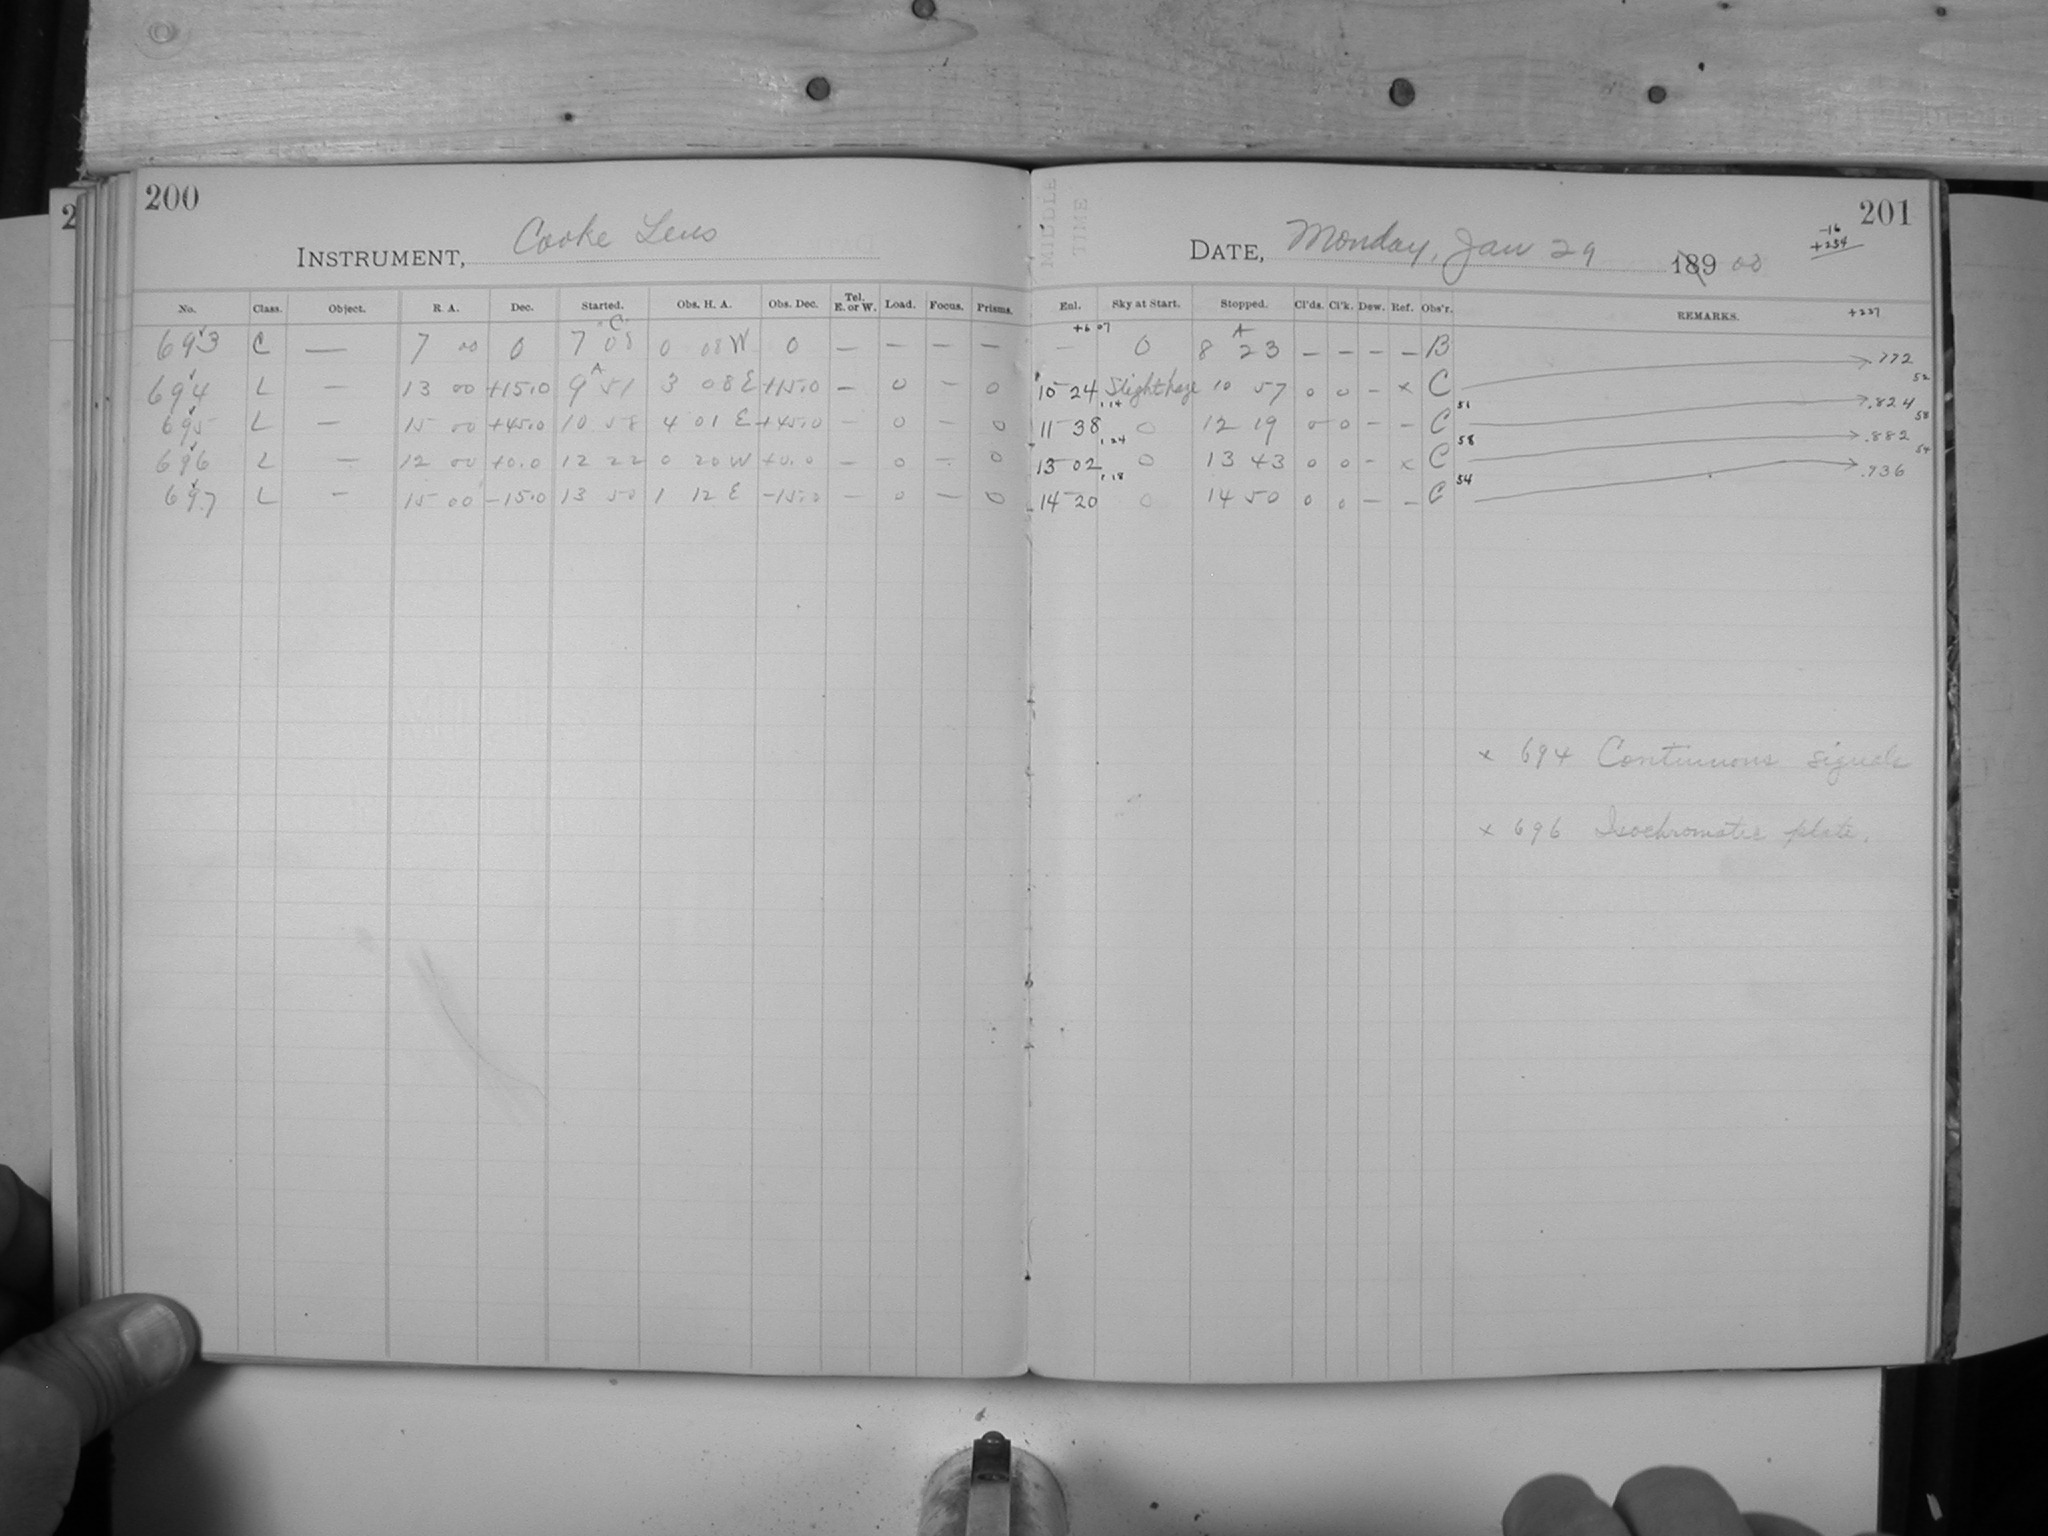 200
INSTRUMENT, Cooke Lens
No. Class. Object. R. A. Dec. Started. Obs. H. A. Obs. Dec. Tel. E. or W. Load. Focus. Prisms.
693 C — 7 00 0 7 C 08 0 08 W 0 — — — —
694 L — 13 00 +15.0 9 A 51 3 08 E +15.0 — 0 — 0
695 L — 15 00 +45.0 10 58 4 01 E +45.0 — 0 — 0
696 L — 12 00 +0.0 12 22 0 20 W +0.0 — 0 — 0
697 L — 15 00 —15.0 13 50 1 12 E —15.0 — 0 — 0
MIDDLE
TIME
201
DATE, Monday, Jan 29 189 00
-16
+254
Enl. Sky at Start. Stopped. Cl'ds. Cl'k. Dew. Ref. Obs'r. REMARKS. +237
+6 07
— 0 8 A 23 — — — — B
10 24 Slight haze 10 57 0 0 — x C .772
1.14 51 52
11 38 0 12 19 0 0 — — C .824
1.24 58 58
13 02 0 13 43 0 0 — x C .882
1.18 54 54
14 20 0 14 50 0 0 — — C .736
x 694 Continuous signals
x 696 Isochromatic plate.